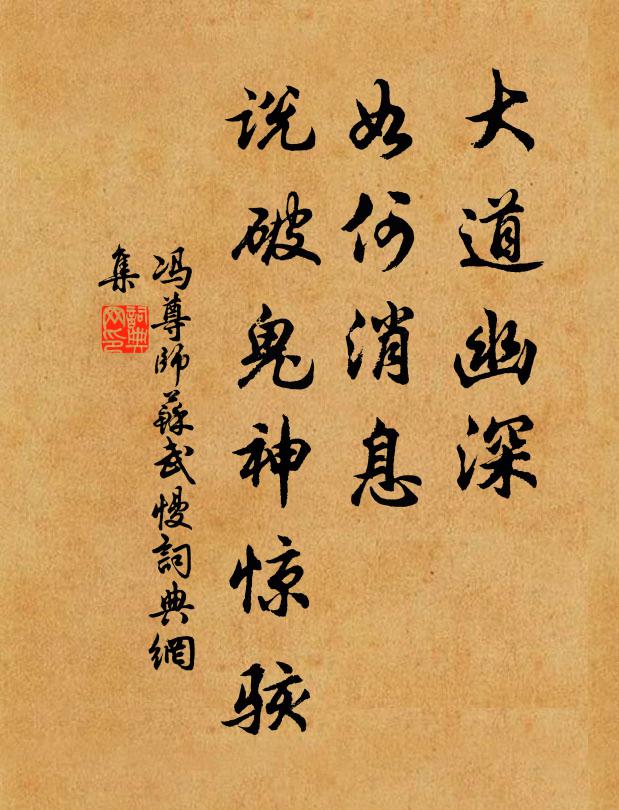 大道幽深
如何消息
说破鬼神惊骇
冯尊师蘇武慢詞典網
集
詞典
网印